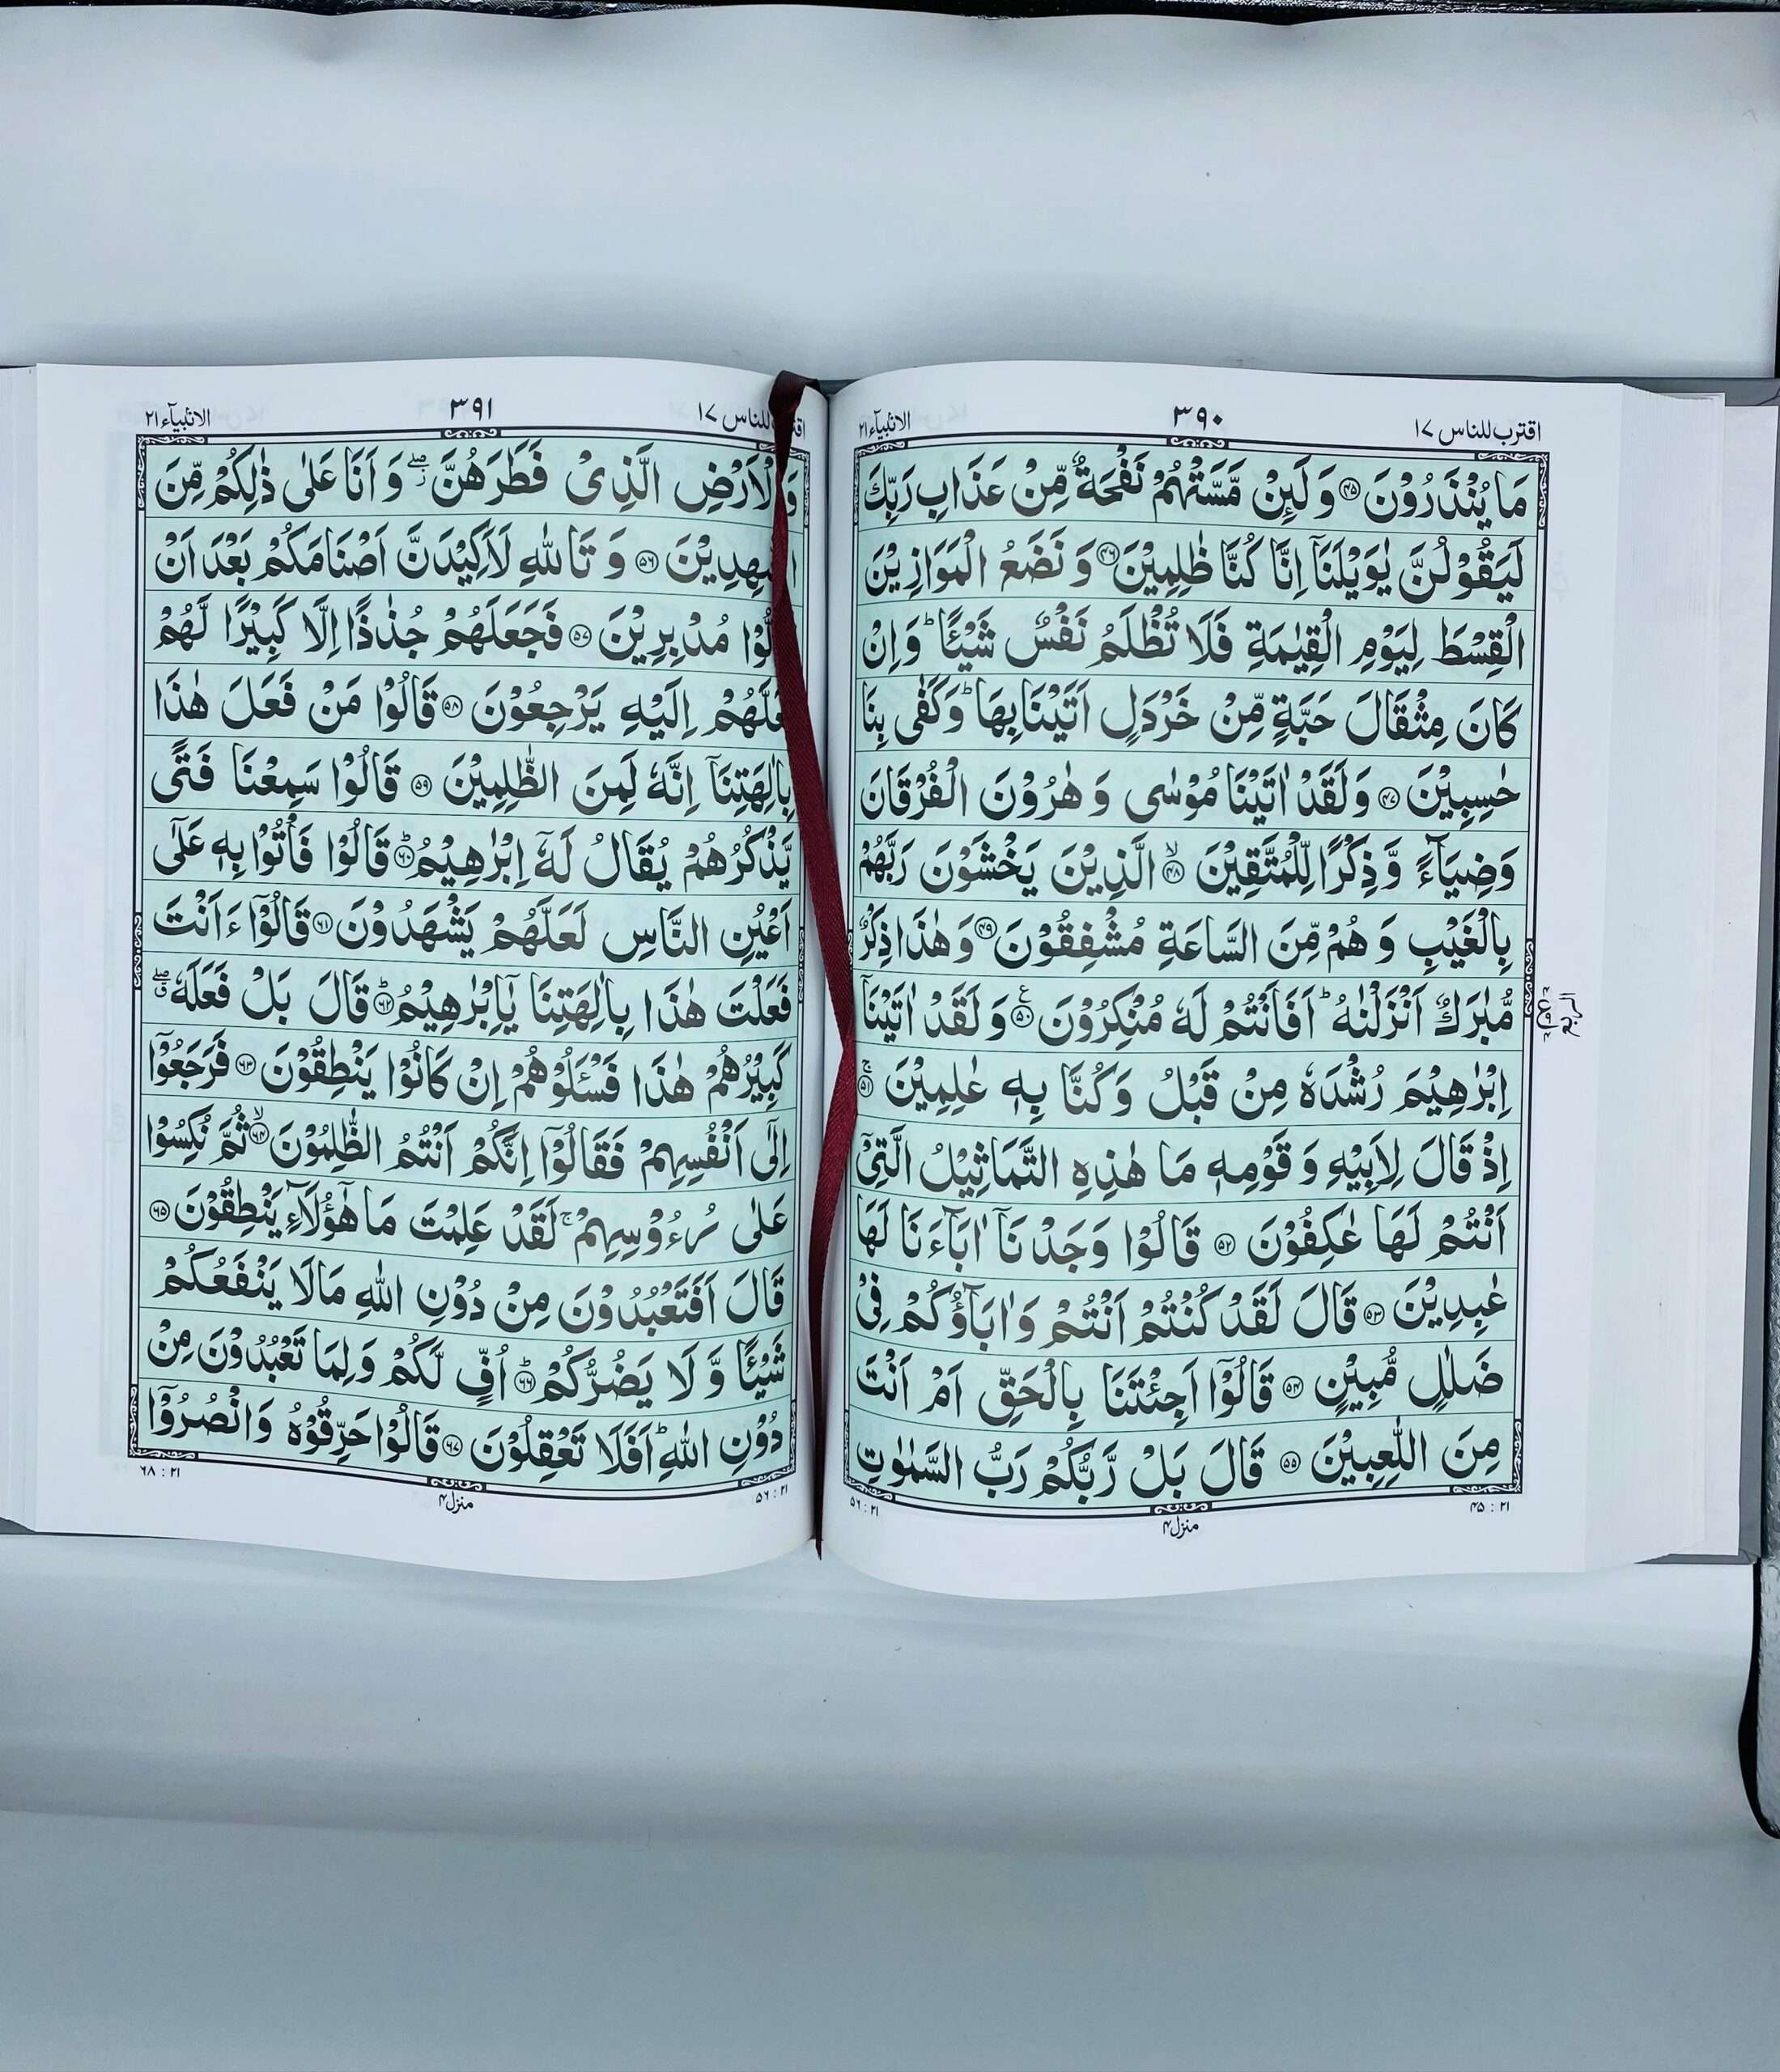 اقترب للناس ١٧
٣٩٠
الانبيآء ٢١
مَا يُنْذَرُوْنَ ۴۵ وَلَئِنْ مَّسَّتْهُمْ نَفْحَةٌ مِّنْ عَذَابِ رَبِّكَ
لَيَقُوْلُنَّ يٰوَيْلَنَاۤ اِنَّا كُنَّا ظٰلِمِيْنَ ۴۶ وَ نَضَعُ الْمَوَازِيْنَ
الْقِسْطَ لِيَوْمِ الْقِيٰمَةِ فَلَا تُظْلَمُ نَفْسٌ شَيْـًٔا ؕ وَاِنْ
كَانَ مِثْقَالَ حَبَّةٍ مِّنْ خَرْدَلٍ اَتَيْنَا بِهَا ؕ وَكَفٰى بِنَا
حٰسِبِيْنَ ۴۷ وَلَقَدْ اٰتَيْنَا مُوْسٰى وَ هٰرُوْنَ الْفُرْقَانَ
وَضِيَآءً وَّذِكْرًا لِّلْمُتَّقِيْنَ ۙ ۴۸ الَّذِيْنَ يَخْشَوْنَ رَبَّهُمْ
بِالْغَيْبِ وَ هُمْ مِّنَ السَّاعَةِ مُشْفِقُوْنَ ۴۹ وَ هٰذَا ذِكْرٌ
مُّبٰرَكٌ اَنْزَلْنٰهُ ؕ اَفَاَنْتُمْ لَهٗ مُنْكِرُوْنَ ۵۰ ع وَ لَقَدْ اٰتَيْنَاۤ
الربع
اِبْرٰهِيْمَ رُشْدَهٗ مِنْ قَبْلُ وَكُنَّا بِهٖ عٰلِمِيْنَ ۚ ۵۱
اِذْ قَالَ لِاَبِيْهِ وَ قَوْمِهٖ مَا هٰذِهِ التَّمَاثِيْلُ الَّتِيْۤ
اَنْتُمْ لَهَا عٰكِفُوْنَ ۵۲ قَالُوْا وَجَدْنَاۤ اٰبَآءَنَا لَهَا
عٰبِدِيْنَ ۵۳ قَالَ لَقَدْ كُنْتُمْ اَنْتُمْ وَاٰبَآؤُكُمْ فِيْ
ضَلٰلٍ مُّبِيْنٍ ۵۴ قَالُوْۤا اَجِئْتَنَا بِالْحَقِّ اَمْ اَنْتَ
مِنَ اللّٰعِبِيْنَ ۵۵ قَالَ بَلْ رَّبُّكُمْ رَبُّ السَّمٰوٰتِ
٢١ : ۴۵
منزل ۴
٢١ : ۵۶
للناس ١٧
٣٩١
الانبيآء ٢١
وَالْاَرْضِ الَّذِىْ فَطَرَهُنَّ ۖ وَ اَنَا عَلٰى ذٰلِكُمْ مِّنَ
الشّٰهِدِيْنَ ۵۶ وَ تَاللّٰهِ لَاَكِيْدَنَّ اَصْنَامَكُمْ بَعْدَ اَنْ
تُوَلُّوْا مُدْبِرِيْنَ ۵۷ فَجَعَلَهُمْ جُذٰذًا اِلَّا كَبِيْرًا لَّهُمْ
لَعَلَّهُمْ اِلَيْهِ يَرْجِعُوْنَ ۵۸ قَالُوْا مَنْ فَعَلَ هٰذَا
بِاٰلِهَتِنَاۤ اِنَّهٗ لَمِنَ الظّٰلِمِيْنَ ۵۹ قَالُوْا سَمِعْنَا فَتًى
يَّذْكُرُهُمْ يُقَالُ لَهٗۤ اِبْرٰهِيْمُ ؕ ۶۰ قَالُوْا فَاْتُوْا بِهٖ عَلٰٓى
اَعْيُنِ النَّاسِ لَعَلَّهُمْ يَشْهَدُوْنَ ۶۱ قَالُوْۤا ءَاَنْتَ
فَعَلْتَ هٰذَا بِاٰلِهَتِنَا يٰۤاِبْرٰهِيْمُ ؕ ۶۲ قَالَ بَلْ فَعَلَهٗ ۖ
كَبِيْرُهُمْ هٰذَا فَسْـَٔلُوْهُمْ اِنْ كَانُوْا يَنْطِقُوْنَ ۶۳ فَرَجَعُوْۤا
اِلٰٓى اَنْفُسِهِمْ فَقَالُوْۤا اِنَّكُمْ اَنْتُمُ الظّٰلِمُوْنَ ۙ ۶۴ ثُمَّ نُكِسُوْا
عَلٰى رُءُوْسِهِمْ ۚ لَقَدْ عَلِمْتَ مَا هٰۤؤُلَآءِ يَنْطِقُوْنَ ۶۵
قَالَ اَفَتَعْبُدُوْنَ مِنْ دُوْنِ اللّٰهِ مَا لَا يَنْفَعُكُمْ
شَيْـًٔا وَّ لَا يَضُرُّكُمْ ؕ ۶۶ اُفٍّ لَّكُمْ وَلِمَا تَعْبُدُوْنَ مِنْ
دُوْنِ اللّٰهِ ؕ اَفَلَا تَعْقِلُوْنَ ۶۷ قَالُوْا حَرِّقُوْهُ وَانْصُرُوْۤا
٢١ : ۵۶
منزل ۴
٢١ : ۶۸